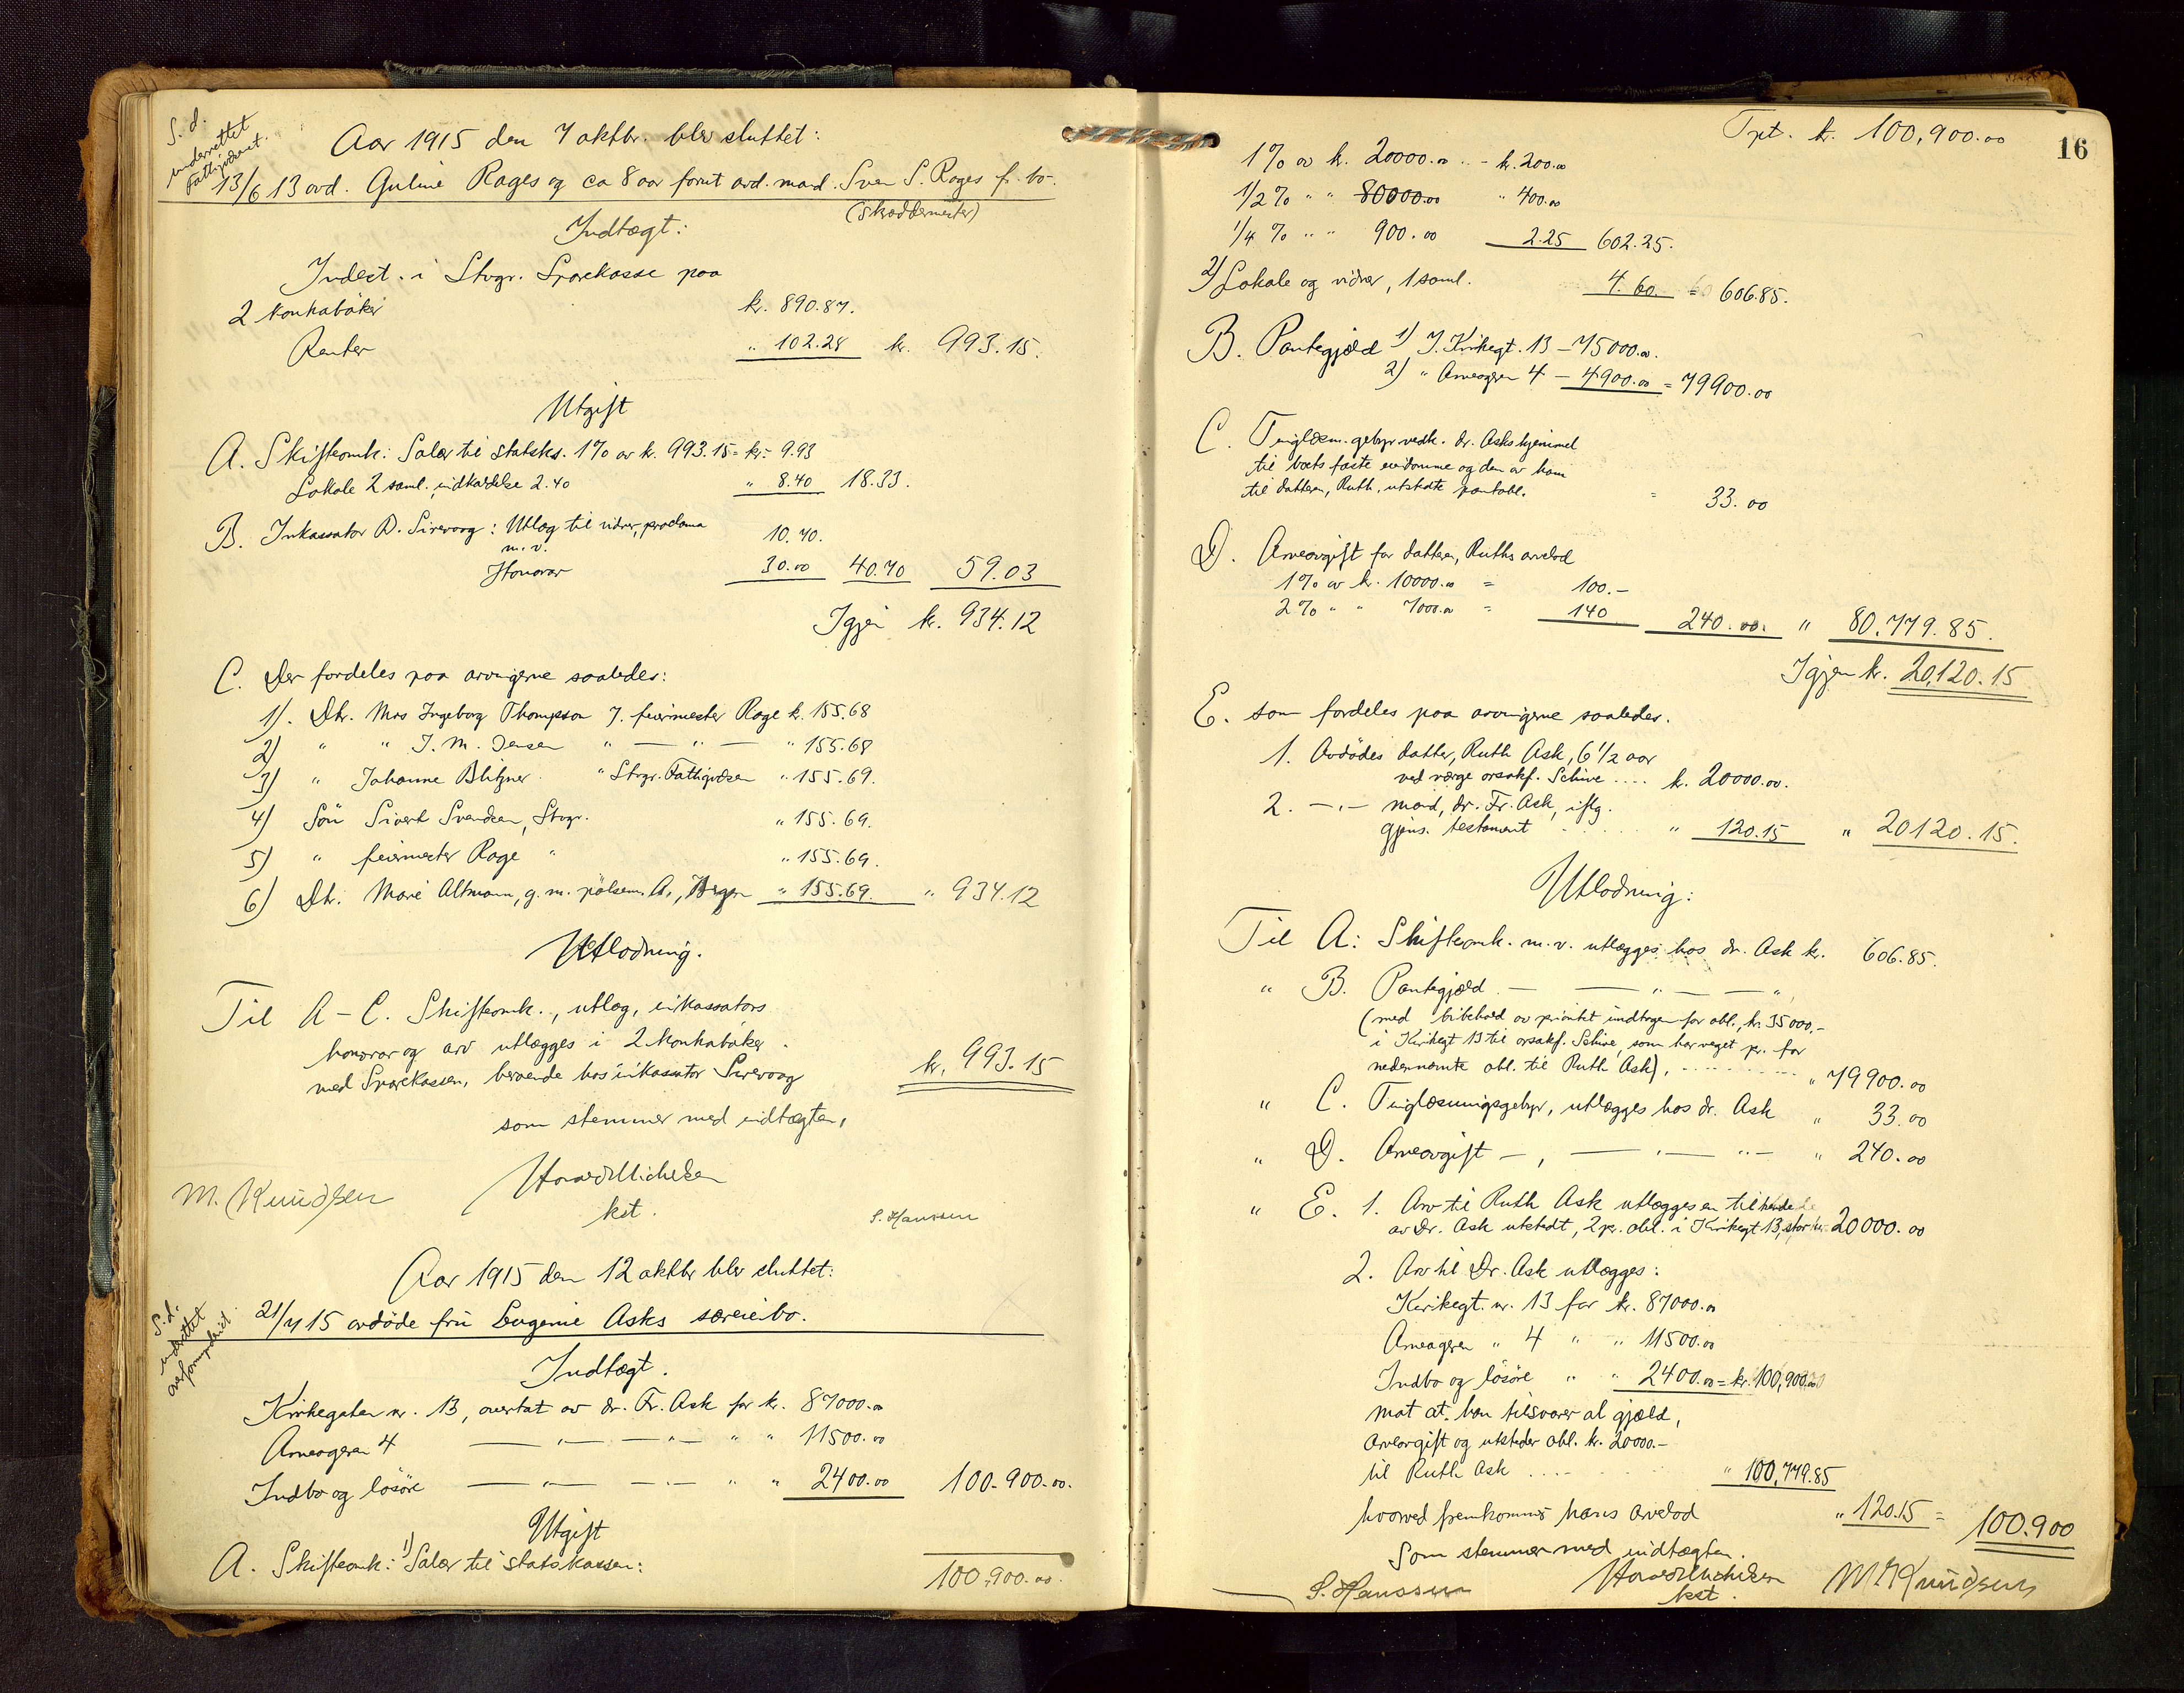 S. d.
underrettet
Fattigvæsenet.
Aar 1915 den 7 oktbr. blev sluttet:
13/6 13 avd. Guline Rages og ca 8 aar forut avd. mand. Sven S. Rages f. bo.
(Skræddermester)
Indtægt:
Indest. i Stvgr. Sparekasse paa
2 kontrabøker kr. 890.87.
Renter " 102.28 kr. 993.15.
Utgift
A. Skifteomk: Salær til statsks. 1% av kr. 993.15 = kr. 9.93
Lokale 2 saml. indkaldelse 2.40 " 8.40 18.33.
B. Inkassator D. Sirevaag: Utlæg til vidner, proclama 10.70.
m.v.
Honorar 30.00 40.70 59.03
Igjen kr. 934.12
C. Der fordeles paa arvingerne saaledes:
1). Dtr. Mrs Ingeborg Thompson f. feiermester Rage k. 155.68
2) " " J. M. Jensen " — " — " 155.68
3) " Johanne Blitzner. " Stvgr. Fattigvæsen " 155.69.
4) Søn Sivert Svendsen, Stvgr. " 155.69.
5) " feiermester Rage " " 155.69.
6) Dtr. Marie Altmann, g. m. pølsem. A., Bergen " 155.69. " 934.12
Utlodning.
Til A – C. Skifteomk., utlæg, inkassators
honorar og arv utlægges i 2 kontrabøker
med Sparekassen, beroende hos inkassator Sirevaag kr. 993.15
som stemmer med indtægten,
M. Knudsen
kst. S. Hanssen
Aar 1915 den 12 oktbr blev sluttet:
S. d.
underrettet
overformynderiet.
21/7 15 avdøde fru Eugenie Asks særeiebo.
Indtægt.
Kirkegaten nr. 13, overtat av dr. Fr. Ask for kr. 87000.00
Arneageren 4 — " — — " — " " 11500.00
Indbo og løsøre — " — — " — " " 2400.00 100.900.00.
Utgift
A. Skifteomk: 1) Salær til statskassen: 100,900.00.
16
Trpt. kr. 100,900.00
1% av kr. 20000.00 .. – kr. 200.00
1/2 % " " 80000.00 " 400.00
1/4 % " " 900.00 2.25 602.25.
2) Lokale og vidner, 1 saml. 4.60. = 606.85.
B. Pantegjæld 1) I. Kirkegt. 13 – 75000.00.
2) " Arneageren 4 – 4900.00 = 79900.00
C. Tinglæsn. gebyr vedk. dr. Asks hjemmel
til boets faste eiendomme og den av ham
til datteren, Ruth, utstedte pantobl. = 33.00
D. Arveavgift for datteren, Ruths arvelod
1% av kr. 10000.00 = 100.–
2% " " 7000.00 = 140 240.00. " 80.779.85.
Igjen kr. 20,120.15
E. som fordeles paa arvingerne saaledes.
1. Avdødes datter, Ruth Ask, 6 1/2 aar
ved værge orsakf. Schive .... kr. 20000.00.
2. – " – mand, dr. Fr. Ask, iflg.
gjens. testament ..... " 120.15 " 20120.15.
Utlodning:
Til A: Skifteomk. m.v. utlægges hos dr. Ask kr. 606.85.
" B. Pantegjæld. — — " — — "
(med bibehold av prioritet indtagen for obl., kr. 35000.–
i Kirkegt 13 til orsakf. Schive, som har veget pr. for
nedennævnte obl. til Ruth Ask), ........ " 79900.00
" C. Tinglæsningsgebyr, utlægges hos dr. Ask " 33.00
" D. Arveavgift — , — " — " — " 240.00
" E. 1. Arv til Ruth Ask utlægges en til hende
av Dr. Ask utstedt, 2 pr. obl. i Kirkegt 13, stor kr. 20000.00
2. Arv til Dr. Ask utlægges:
Kirkegt. nr. 13 for kr. 87000.00
Arneageren " 4 " " 11500.00
Indbo og løsøre " " 2400.00 = kr. 100,900.00
mot at han tilsvarer al gjæld,
arveavgift og utsteder obl. kr. 20000.–
til Ruth Ask .... " 100,779.85
hvorved fremkommer hans arvelod " 120.15 = 100.900
Som stemmer med indtægten.
S. Hanssen kst. M. Knudsen